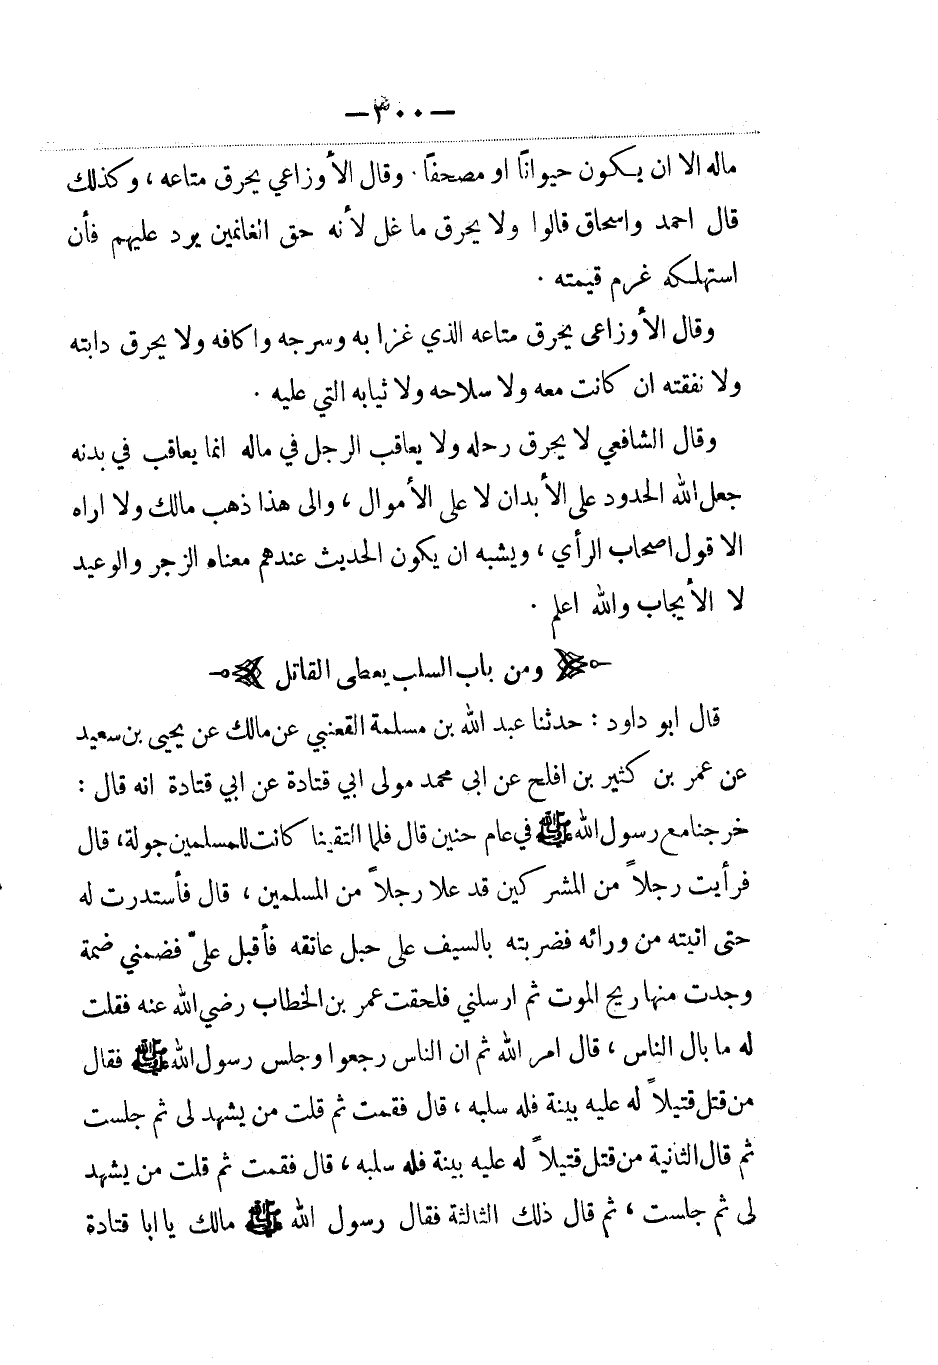 — ٣٠٠ —
ماله الا ان يكون حيوانًا او مصحفًا . وقال الأوزاعي يحرق متاعه ، وكذلك
قال احمد واسحاق قالوا ولا يحرق ما غل لأنه حق الغانمين يرد عليهم فأن
استهلكه غرم قيمته .
وقال الأوزاعى يحرق متاعه الذي غزا به وسرجه واكافه ولا يحرق دابته
ولا نفقته ان كانت معه ولا سلاحه ولا ثيابه التي عليه .
وقال الشافعي لا يحرق رحله ولا يعاقب الرجل في ماله انما يعاقب في بدنه
جعل الله الحدود على الأبدان لا على الأموال ، والى هذا ذهب مالك ولا اراه
الا قول اصحاب الرأي ، ويشبه ان يكون الحديث عندهم معناه الزجر والوعيد
لا الأيجاب والله اعلم .
ومن باب السلب يعطى القاتل
قال ابو داود : حدثنا عبد الله بن مسلمة القعنبي عن مالك عن يحيى بن سعيد
عن عمر بن كثير بن افلح عن ابى محمد مولى ابي قتادة عن ابي قتادة انه قال :
خرجنا مع رسول الله ﷺ في عام حنين قال فلما التقينا كانت للمسلمين جولة، قال
فرأيت رجلاً من المشركين قد علا رجلاً من المسلمين ، قال فأستدرت له
حتى اتيته من ورائه فضربته بالسيف على حبل عاتقه فأقبل عليّ فضمني ضمة
وجدت منها ريح الموت ثم ارسلني فلحقت عمر بن الخطاب رضي الله عنه فقلت
له ما بال الناس ، قال امر الله ثم ان الناس رجعوا وجلس رسول الله ﷺ فقال
من قتل قتيلاً له عليه بينة فله سلبه ، قال فقمت ثم قلت من يشهد لى ثم جلست
ثم قال الثانية من قتل قتيلاً له عليه بينة فله سلبه ، قال فقمت ثم قلت من يشهد
لى ثم جلست ، ثم قال ذلك الثالثة فقال رسول الله ﷺ مالك يا ابا قتادة